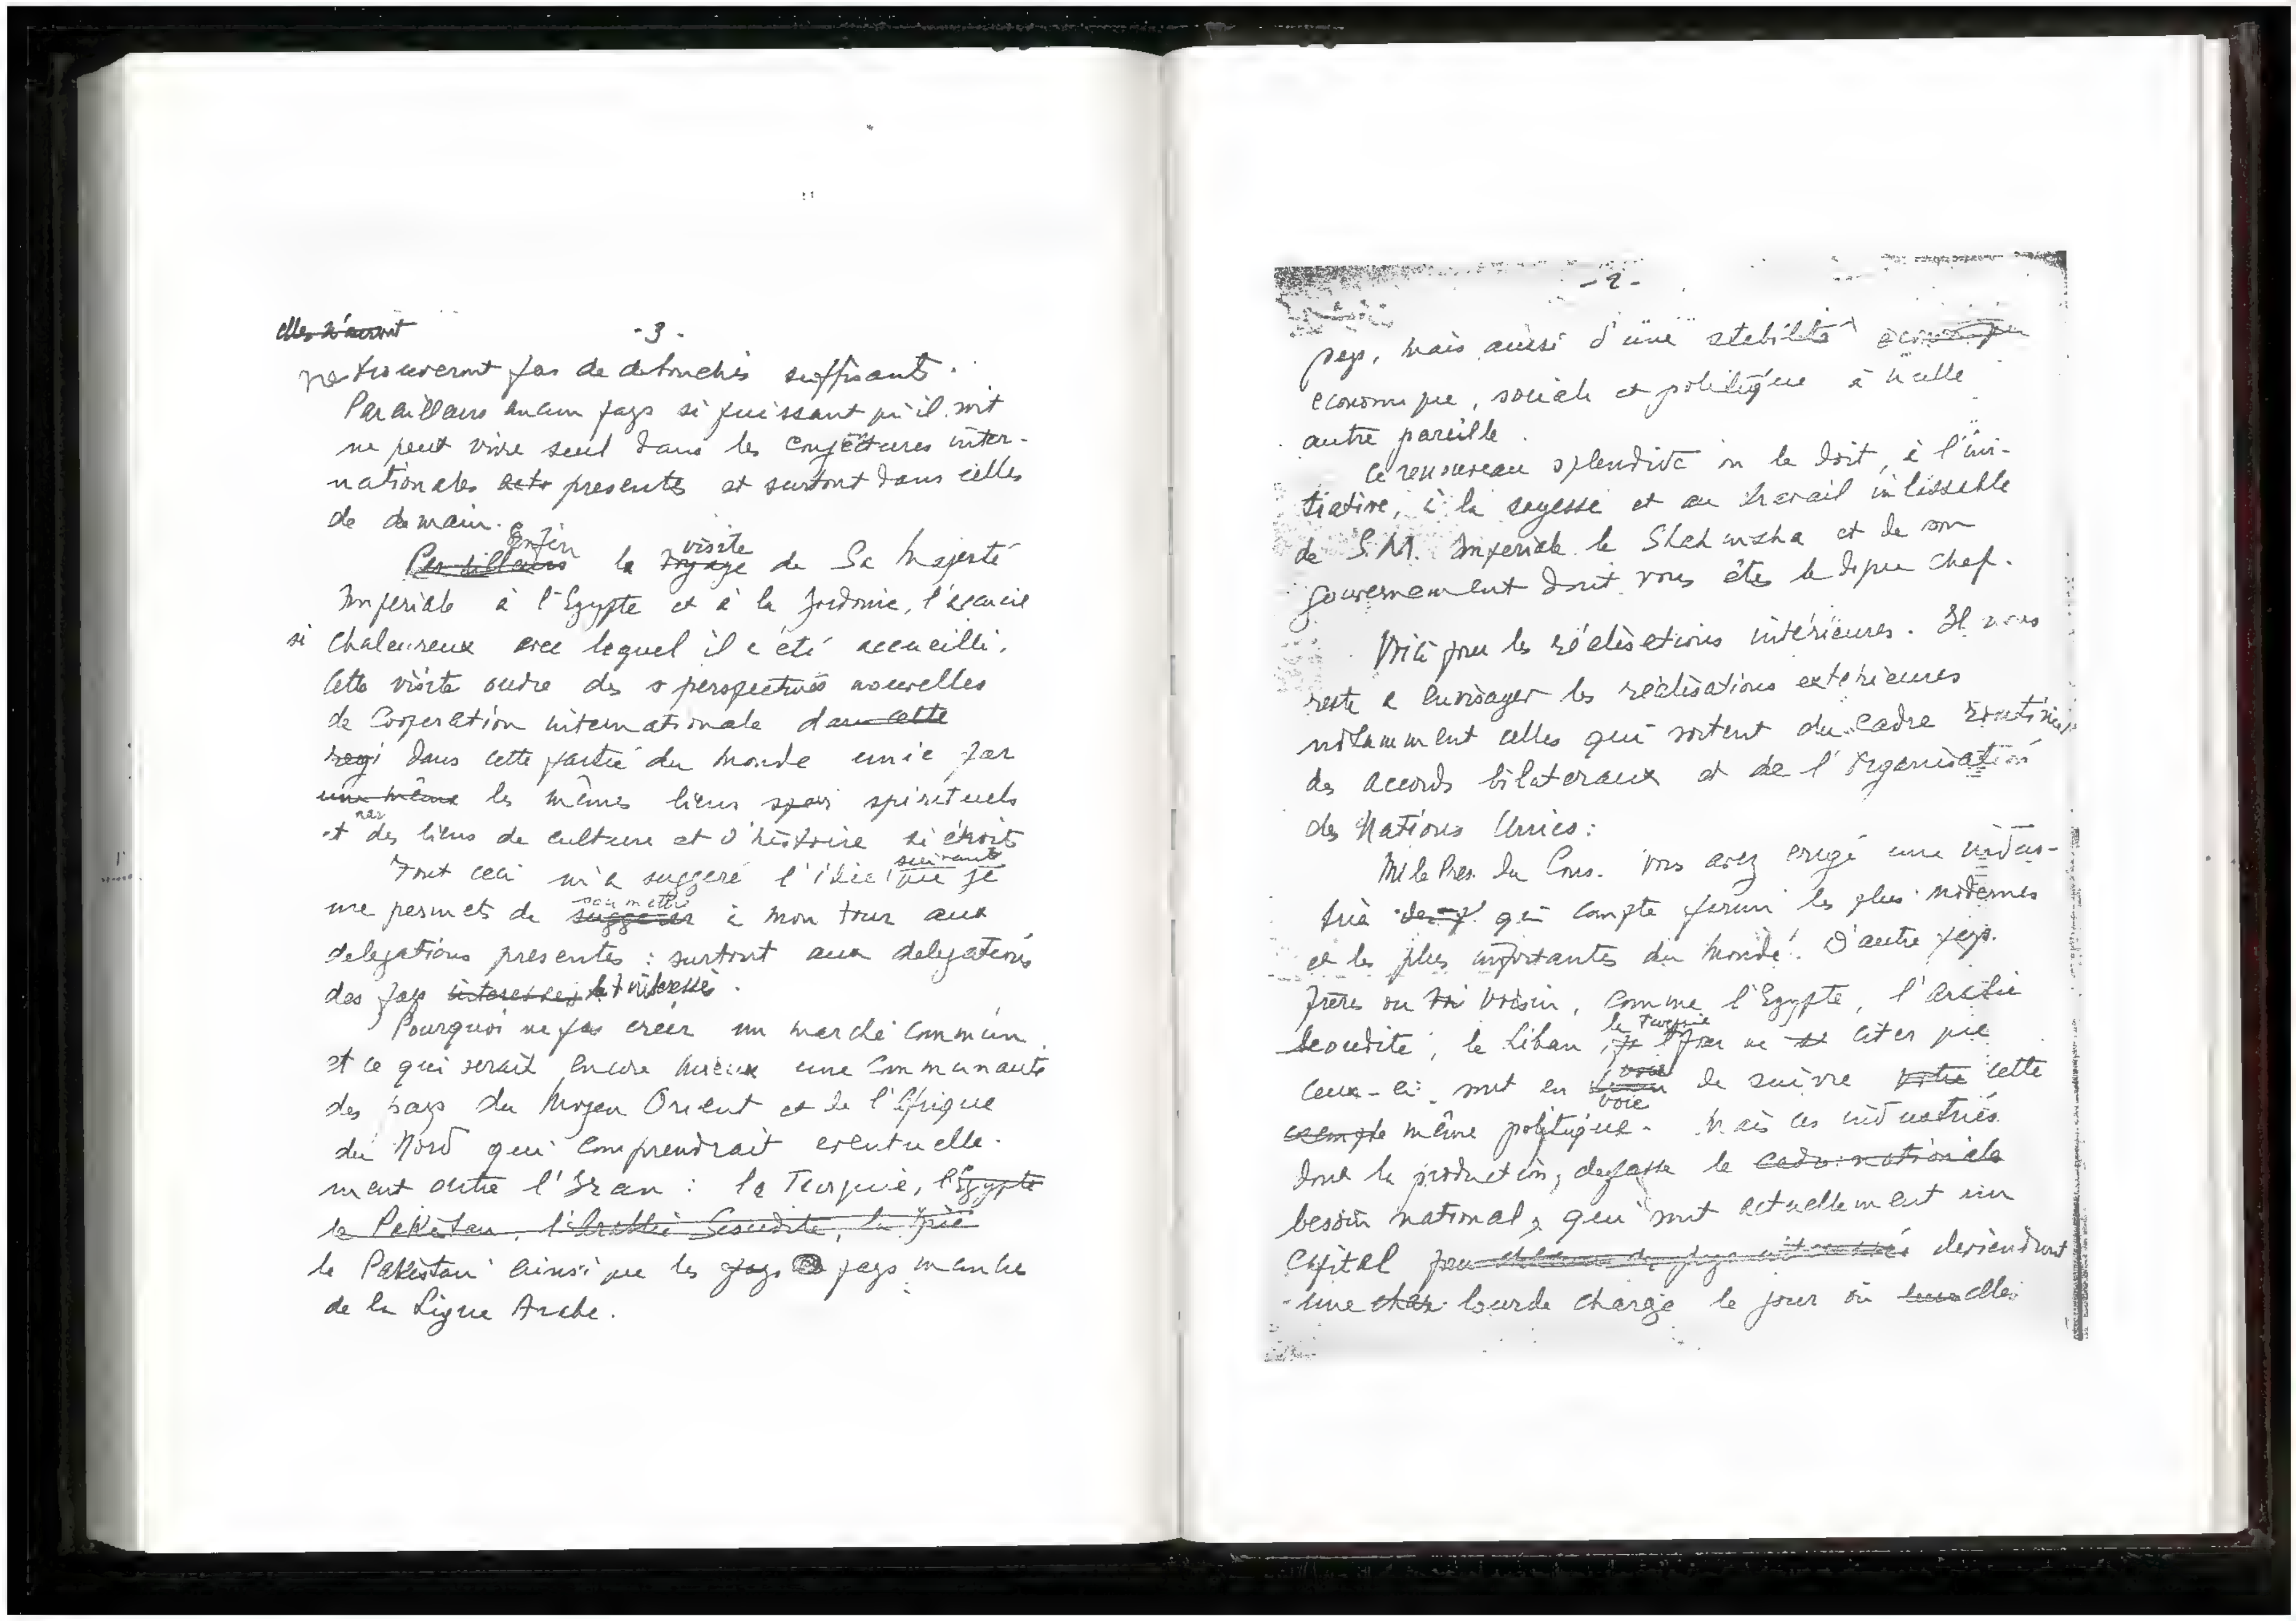 elles n'auront
- 3 -
ne trouveront pas de debouchés suffisants.
Par ailleurs aucun pays si puissant qu'il soit
ne peut vivre seul dans les conjectures inter-
nationales presentes et surtout dans celles
de demain.
Enfin
Par ailleurs la voyage visite de Sa Majesté
Imperiale à l'Egypte et à la Jordanie, l'accueil
si chaleureux avec lequel il a été accueilli.
Cette visite ouvre des perspectives nouvelles
de Cooperation internationale dans cette
regi dans cette partie du monde unie par
une même les mêmes liens spiri spirituels
et par des liens de culture et d'histoire si étroits
Tout ceci m'a suggeré l'idée suivante que je
me permets de suggerer soumettre à mon tour aux
delegations presentes : surtout aux delegations
des pays interessés.
Pourquoi ne pas créer un marché commun
et ce qui serait encore mieux une Communauté
des pays du Moyen Orient et de l'Afrique
du Nord qui comprendrait eventuelle-
ment outre l'Iran : la Turquie, l'Egypte
le Pakistan, l'Arabie Seoudite, la Syrie
le Pakistan ainsi que les pays pays membre
de la Ligue Arabe.
- 2 -
pays, mais aussi d'une stabilité economique
economique, sociale et politique à nulle
autre pareille.
Ce renouveau splendide on le doit, à l'ini-
tiative, à la sagesse et au travail inlassable
de S.M. Imperiale le Shahinsha et de son
gouvernement dont vous êtes le digne Chef.
Voilà pour les réalisations intérieures. Il nous
reste a envisager les réalisations extérieures
notamment celles qui sortent du cadre routinier
des accords bilateraux et de l'Organisation
des Nations Unies :
M. le Pres. du Cons. vous avez erigé une indus-
trie qui compte parmi les plus modernes
et les plus importantes du monde. D'autre pays
frères ou voisin, comme l'Egypte, l'Arabie
Seoudite, le Liban, la Turquie ne citer que
ceux-ci sont en voie de suivre votre cette
exemple même politique. Mais ces industries
dont la production, depasse le cadre nationale
besoin national, qui sont actuellement un
capital deviendront
une char lourde charge le jour où elles